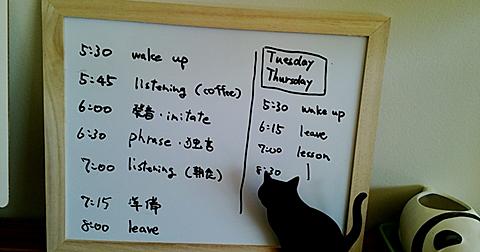 5:30 wake up
5:45 listening (coffee)
6:00 発音・imitate
6:30 phrase・独言
7:00 listening (朝食)
7:15 準備
8:00 leave
Tuesday
Thursday
5:30 wake up
6:15 leave
7:00 lesson
8:30